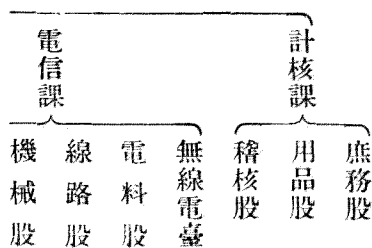 計核課
庶務股
用品股
稽核股
電信課
無線電臺
電料股
線路股
機械股